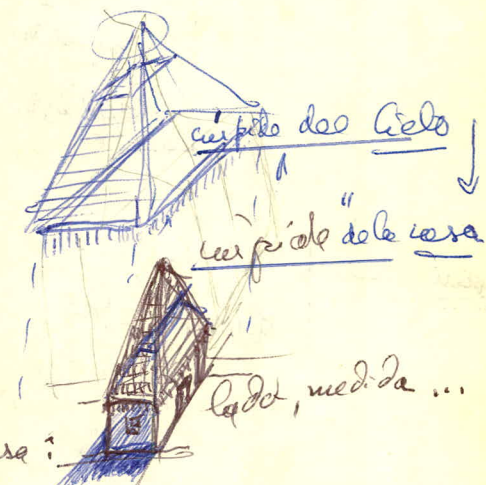 cúspide del Cielo
cúspide "de la casa
lado, medida ...
sa :